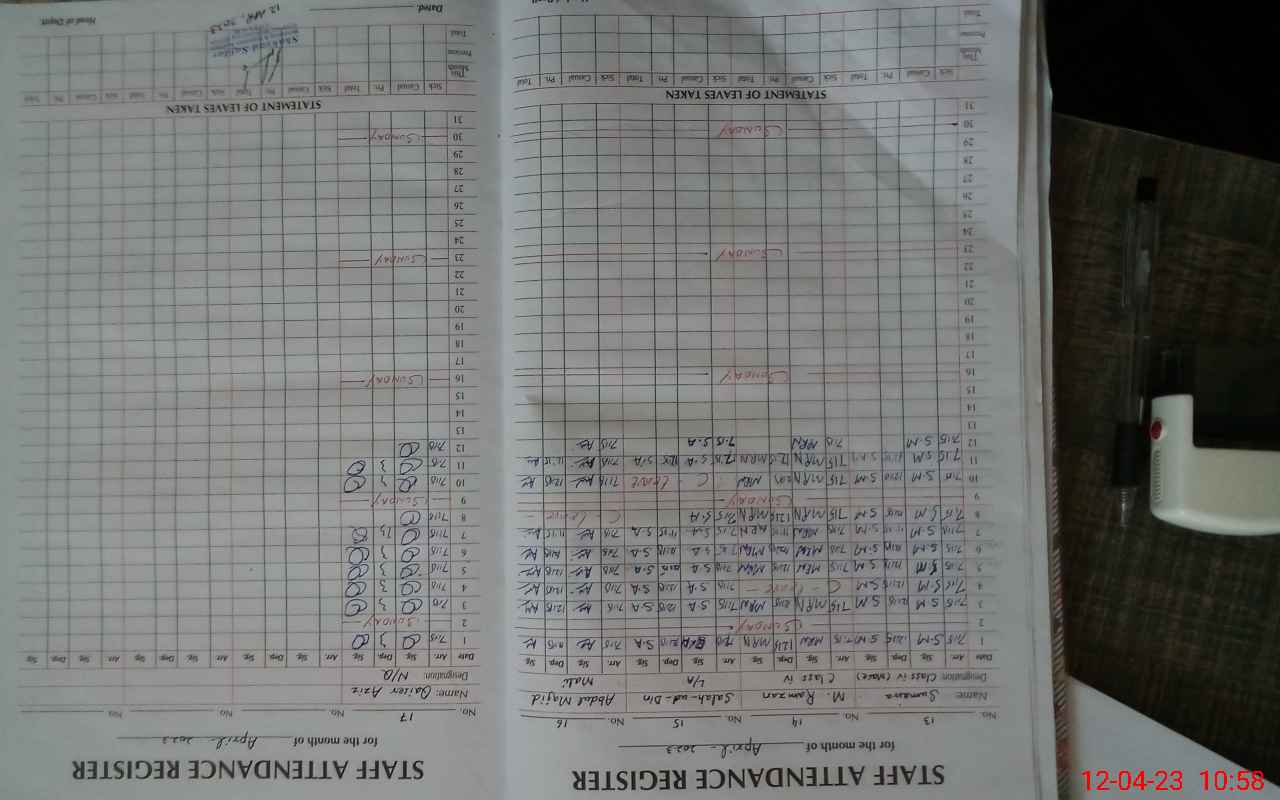 STAFF ATTENDANCE REGISTER
for the month of April - 2023
No. 13 No. 14 No. 15 No. 16
Name: Sumaira M. Ramzan Salah-ud-Din Abdul Majid
Designation: Class iv Class iv L/A Mali
Date Arr. Sig. Dep. Sig. Arr. Sig. Dep. Sig. Arr. Sig. Dep. Sig. Arr. Sig. Dep. Sig.
1 7:15 S.M 12:15 S.M 7:15 MRN 12:15 MRN 7:15 S.A 7:15
2 SUNDAY
3 7:15 S.M 12:15 S.M 7:15 MRN 12:15 MRN 7:15 S.A 12:15 S.A 7:15 12:15
4 7:15 S.M 12:15 S.M C - Leave - 7:15 S.A 12:15 S.A 7:15 12:15
5 7:15 12:15 S.M 7:15 MRN 12:15 MRN 7:15 S.A 12:15 S.A 7:15 12:15
6 7:15 S.M 12:15 S.M 7:15 MRN 12:15 MRN 7:15 S.A 12:15 S.A 7:15 12:15
7 7:15 S.M S.M 7:15 MRN MRN 7:15 S.A S.A 7:15
8 7:15 S.M 12:15 S.M 7:15 MRN 12:15 MRN 7:15 S.A C - Leave -
9 SUNDAY
10 7:15 S.M 12:15 S.M 7:15 MRN 12:15 MRN C - Leave 7:15 12:15
11 7:15 S.M 12:15 S.M 7:15 MRN 12:15 MRN 7:15 S.A 12:15 S.A 7:15 12:15
12 7:15 S.M 7:15 MRN 7:15 S.A 7:15
13
14
15
16 SUNDAY
17
18
19
20
21
22
23 SUNDAY
24
25
26
27
28
29
30 SUNDAY
31
STATEMENT OF LEAVES TAKEN
Sick Casual Pri. Total Sick Casual Pri. Total Sick Casual Pri. Total Sick Casual Pri. Total
This Month
Previous
Total
STAFF ATTENDANCE REGISTER
for the month of April - 2023
No. 17 No. No. No.
Name: Qaiser Aziz
Designation: N/Q
Date Arr. Sig. Dep. Sig. Arr. Sig. Dep. Sig. Arr. Sig. Dep. Sig. Arr. Sig. Dep. Sig.
1 7:15 3
2 SUNDAY
3 7:15 3
4 7:15 3
5 7:15 3
6 7:15 3
7 7:15
8 7:15
9 SUNDAY
10 7:15 3
11 7:15 3
12 7:15
13
14
15
16 SUNDAY
17
18
19
20
21
22
23 SUNDAY
24
25
26
27
28
29
30 SUNDAY
31
STATEMENT OF LEAVES TAKEN
Sick Casual Pri. Total Sick Casual Pri. Total Sick Casual Pri. Total Sick Casual Pri. Total
This Month
Previous
Total
12 APR, 2023
Dated: Head of Deptt.
12-04-23 10:58